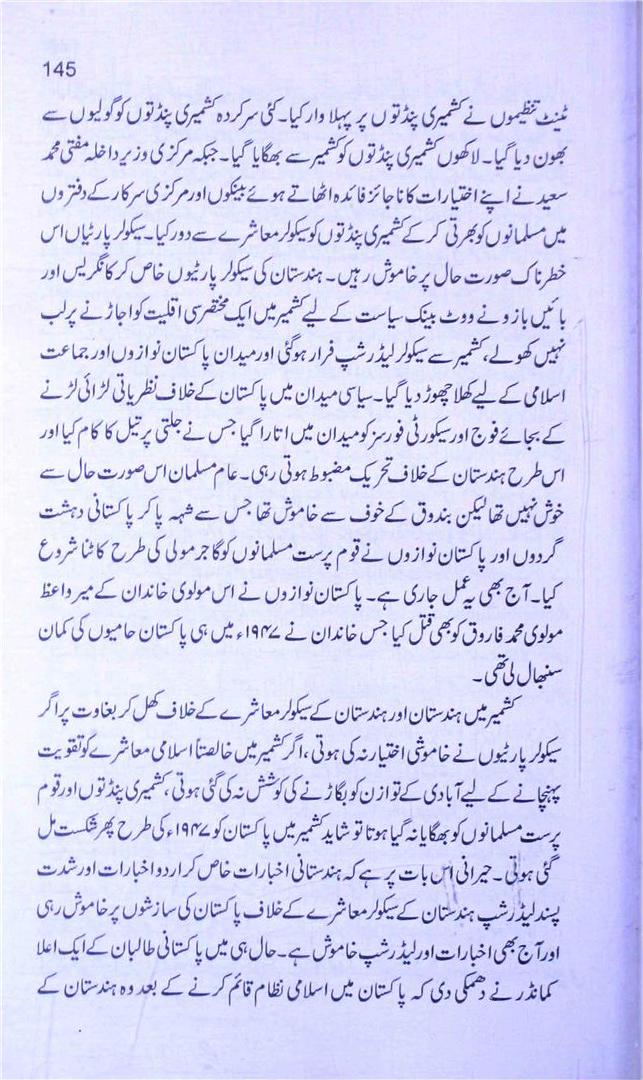 145
ٹینٹ تنظیموں نے کشمیری پنڈتوں پر پہلا وار کیا۔ کئی سرکردہ کشمیری پنڈتوں کو گولیوں سے
بھون دیا گیا۔ لاکھوں کشمیری پنڈتوں کو کشمیر سے بھگایا گیا۔ جبکہ مرکزی وزیر داخلہ مفتی محمد
سعید نے اپنے اختیارات کا ناجائز فائدہ اٹھاتے ہوئے بینکوں اور مرکزی سرکار کے دفتروں
میں مسلمانوں کو بھرتی کر کے کشمیری پنڈتوں کو سیکولر معاشرے سے دور کیا۔ سیکولر پارٹیاں اس
خطرناک صورت حال پر خاموش رہیں۔ ہندستان کی سیکولر پارٹیوں خاص کر کانگریس اور
بائیں بازو نے ووٹ بینک سیاست کے لیے کشمیر میں ایک مختصر سی اقلیت کو اجاڑنے پر لب
نہیں کھولے، کشمیر سے سیکولر لیڈر شپ فرار ہوگئی اور میدان پاکستان نوازوں اور جماعت
اسلامی کے لیے کھلا چھوڑ دیا گیا۔ سیاسی میدان میں پاکستان کے خلاف نظریاتی لڑائی لڑنے
کے بجائے فوج اور سیکورٹی فورسز کو میدان میں اتارا گیا جس نے جلتی پر تیل کا کام کیا اور
اس طرح ہندستان کے خلاف تحریک مضبوط ہوتی رہی۔ عام مسلمان اس صورت حال سے
خوش نہیں تھا لیکن بندوق کے خوف سے خاموش تھا جس سے شہہ پا کر پاکستانی دہشت
گردوں اور پاکستان نوازوں نے قوم پرست مسلمانوں کو گاجر مولی کی طرح کاٹنا شروع
کیا۔ آج بھی یہ عمل جاری ہے۔ پاکستان نوازوں نے اس مولوی خاندان کے میر واعظ
مولوی محمد فاروق کو بھی قتل کیا جس خاندان نے ۱۹۴۷ء میں ہی پاکستان حامیوں کی کمان
سنبھال لی تھی۔
کشمیر میں ہندستان اور ہندستان کے سیکولر معاشرے کے خلاف کھل کر بغاوت پر اگر
سیکولر پارٹیوں نے خاموشی اختیار نہ کی ہوتی، اگر کشمیر میں خالصتاً اسلامی معاشرے کو تقویت
پہنچانے کے لیے آبادی کے توازن کو بگاڑنے کی کوشش نہ کی گئی ہوتی، کشمیری پنڈتوں اور قوم
پرست مسلمانوں کو بھگایا نہ گیا ہوتا تو شاید کشمیر میں پاکستان کو ۱۹۴۷ء کی طرح پھر شکست مل
گئی ہوتی۔ حیرانی اس بات پر ہے کہ ہندستانی اخبارات خاص کر اردو اخبارات اور شدت
پسند لیڈر شپ ہندستان کے سیکولر معاشرے کے خلاف پاکستان کی سازشوں پر خاموش رہی
اور آج بھی اخبارات اور لیڈر شپ خاموش ہے۔ حال ہی میں پاکستانی طالبان کے ایک اعلا
کمانڈر نے دھمکی دی کہ پاکستان میں اسلامی نظام قائم کرنے کے بعد وہ ہندستان کے